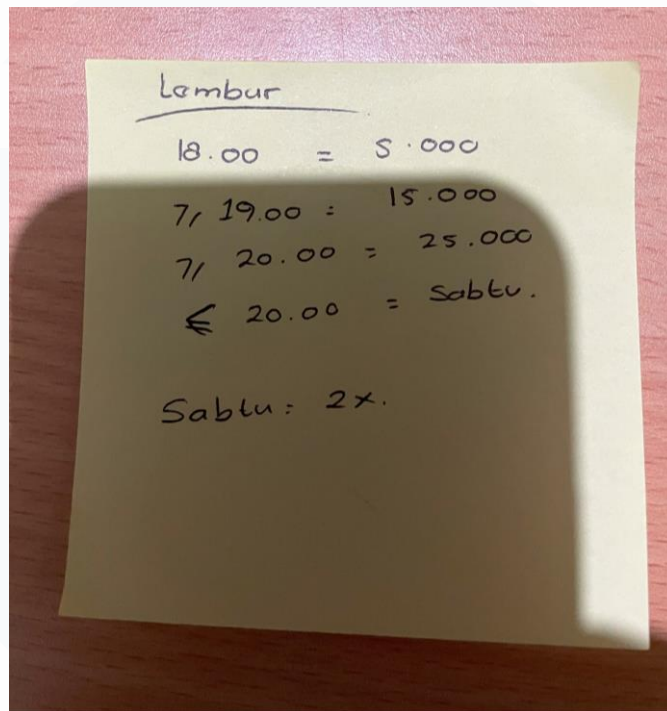 Lembur
18.00 = 5.000
7, 19.00 = 15.000
7, 20.00 = 25.000
≤ 20.00 = Sabtu.
Sabtu = 2x.